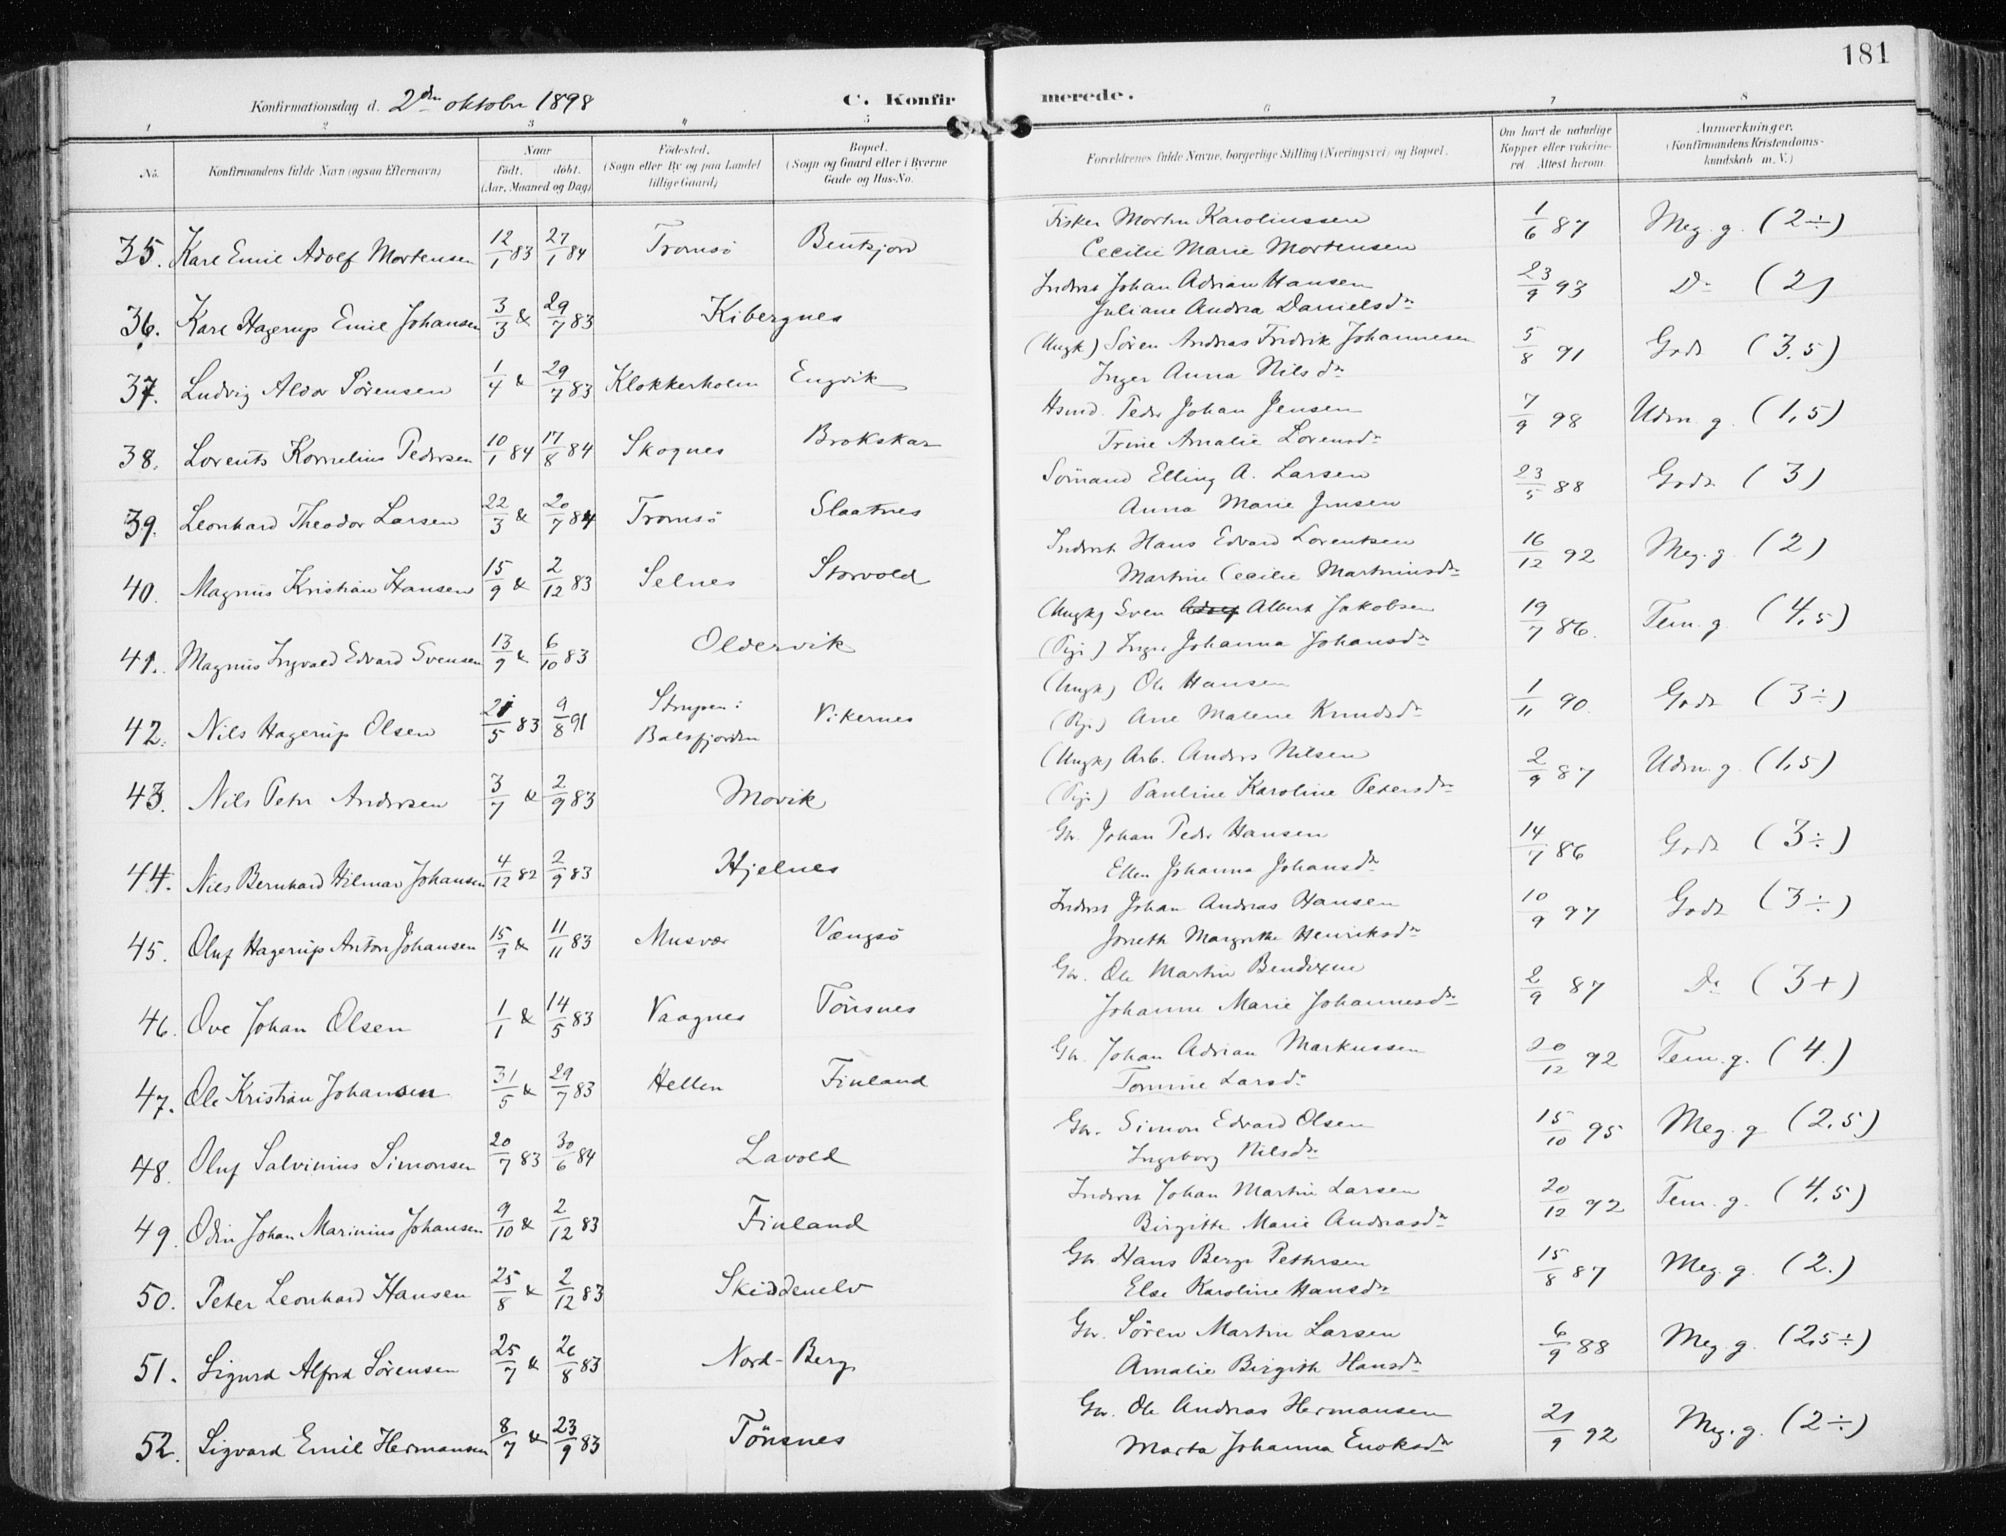 181
Konfirmationsdag d. 2den oktober 1898
C. Konfirmerede.
1 2 3 4 5 6 7 8
No. Konfirmandens fulde Navn (ogsaa Efternavn) Naar Født. døbt. (Aar, Maaned og Dag) Fødested. (Sogn eller By og paa Landet tillige Gaard) Bopæl. (Sogn og Gaard eller i Byerne Gade og Hus-No. Forældrenes fulde Navne, borgerlige Stilling (Næringsvei) og Bopæl. Om havt de naturlige Kopper eller vaccineret Attest herom. Anmærkninger. (Konfirmandens Kristendomskundskab m. V.)
35. Karl Emil Adolf Mortensen 12/1 83 27/1 84 Tromsö Bentsjord Fisker Morten Karolinssen 1/6 87 Meg. g. (2÷)
Cecilie Marie Mortensen
36. Karl Hagerup Emil Johansen 3/3 & 29/7 83 Kibergnes Inderst Johan Adrian Hansen 23/9 93 Do (2)
Juliane Andrea Danielsdr
37. Ludvig Aldor Sörensen 1/4 & 29/7 83 Klokkerholm Engvik (Ungk) Sören Andreas Fredrik Johannesen 5/8 91 Godt (3.5)
Inger Anna Nilsdr
38. Lorents Kornelius Pedersen 10/1 84 17/8 84 Skognes Brokskar Hsmd. Peder Johan Jensen 7/9 98 Udm. g. (1,5)
Trine Amalie Lorensdr
39. Leonhard Theodor Larsen 22/3 & 20/7 84 Tromsö Slaatnes Sömand Elling A. Larsen 23/5 88 Godt (3)
Anna Marie Jensen
40. Magnus Kristian Hansen 15/9 & 2/12 83 Selnes Storvold Inderst Hans Edvard Lorentsen 16/12 92 Meg. g. (2)
Martine Cecilie Martinusdr
41. Magnus Ingvald Edvard Svensen 13/9 & 6/10 83 Oldervik (Ungk) Sven Albert Jakobsen 19/7 86. Tem. g. (4,5)
(Pige) Inger Johanna Johansdr
42. Nils Hagerup Olsen 21/5 83 9/8 91 Strupen i Balsfjorden Vikernes (Ungk) Ole Hansen 1/11 90. Godt (3÷)
(Pige) Ane Malene Knudsdr
43. Nils Peter Andersen 3/7 & 2/9 83 Movik (Ungk) Arb. Anders Nilsen 2/9 87 Udm. g. (1,5)
(Pige) Pauline Karoline Pedersdr
44. Nils Bernhard Hilmar Johansen 4/12 82 2/9 83 Hjelnes Gbr. Johan Peder Hansen 14/7 86 Godt (3÷)
Ellen Johanna Johansdr
45. Oluf Hagerup Anton Johansen 15/9 & 11/11 83 Musvær Vængsö Inderst Johan Andreas Hansen 10/9 97 Godt (3÷)
Joneth Margrethe Henriksdr
46. Ove Johan Olsen 1/1 & 14/5 83 Vaagnes Tönsnes Gbr. Ole Martin Bendixen 2/9 87 Do (3+)
Johanne Marie Johannesdr
47. Ole Kristian Johansen 31/5 & 29/7 83 Hellen Finland Gbr. Johan Adrian Markussen 20/12 92 Tem. g. (4.)
Tomine Larsdr
48. Oluf Salvinius Simonsen 20/7 83 30/6 84 Lavold Gbr. Simon Edvard Olsen 15/10 95 Meg. g (2,5)
Ingeborg Nilsdr
49. Odin Johan Marinius Johansen 9/10 & 2/12 83 Finland Inderst Johan Martin Larsen 20/12 92 Tem. g. (4,5)
Birgitte Marie Andreasdr
50. Peter Leonhard Hansen 25/8 & 2/12 83 Skiddenelv Gbr Hans Berge Pettersen 15/8 87 Meg. g. (2.)
Else Karoline Hansdr
51. Sigurd Alfred Sörensen 25/7 & 26/8 83 Nord-Berg Gbr. Sören Martin Larsen 6/9 88 Meg. g. (2,5÷)
Amalie Birgith Hansdr
52. Sigvard Emil Hermansen 8/7 & 23/9 83 Tönsnes Gbr. Ole Andreas Hermansen 21/9 92 Meg. g. (2÷)
Marta Johanna Enoksdr